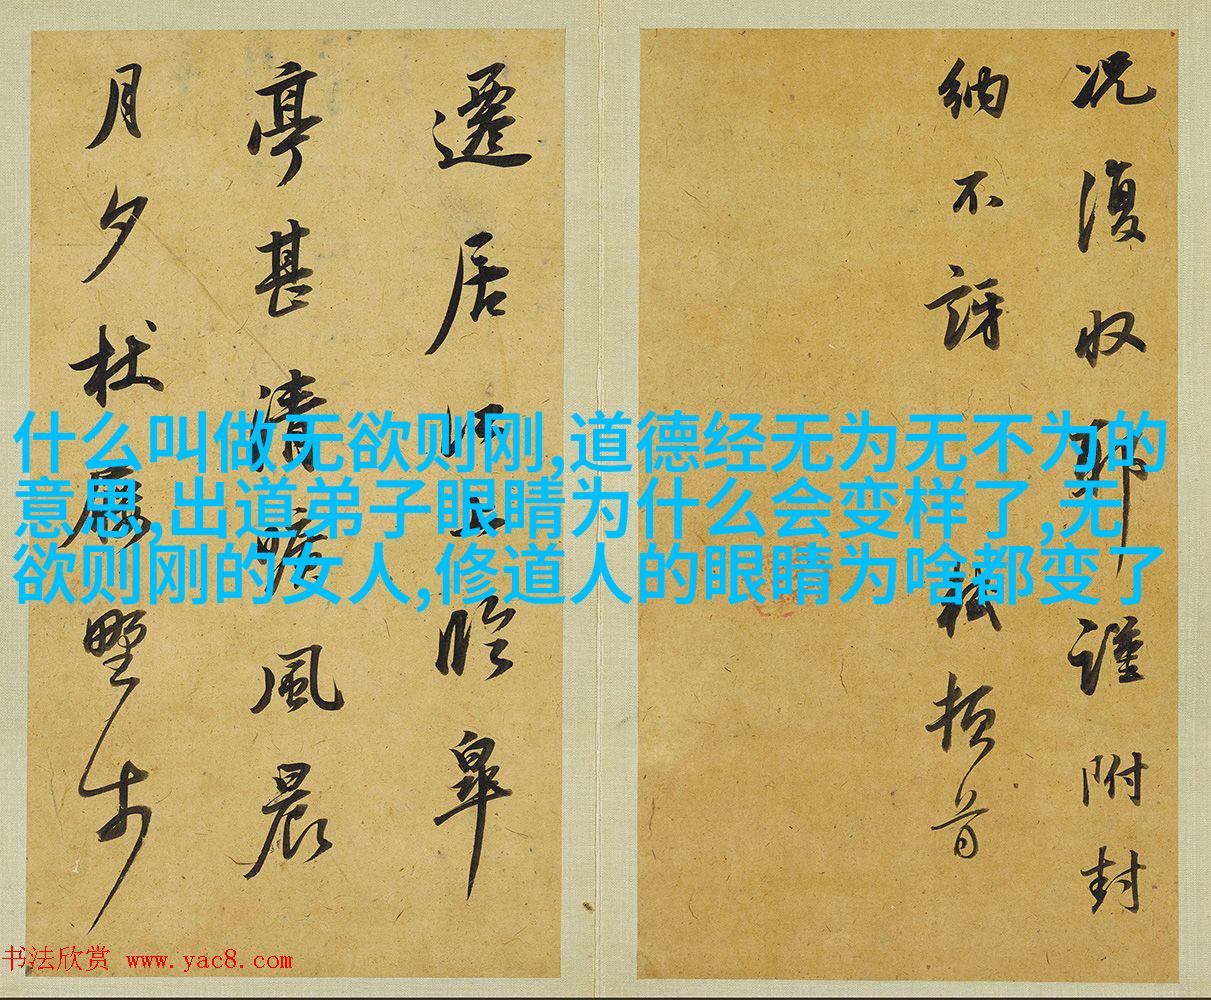 况復収耶謹附封
納不訝軾頓首
遷居江上臨皋
亭甚清曠風晨
月夕杖屨野步
什么叫做无欲则刚,道德经无为无不为的
意思,出道弟子眼睛为什么会变样了,无
欲则刚的女人,修道人的眼睛为啥都变了
书法欣赏 www.yac8.com